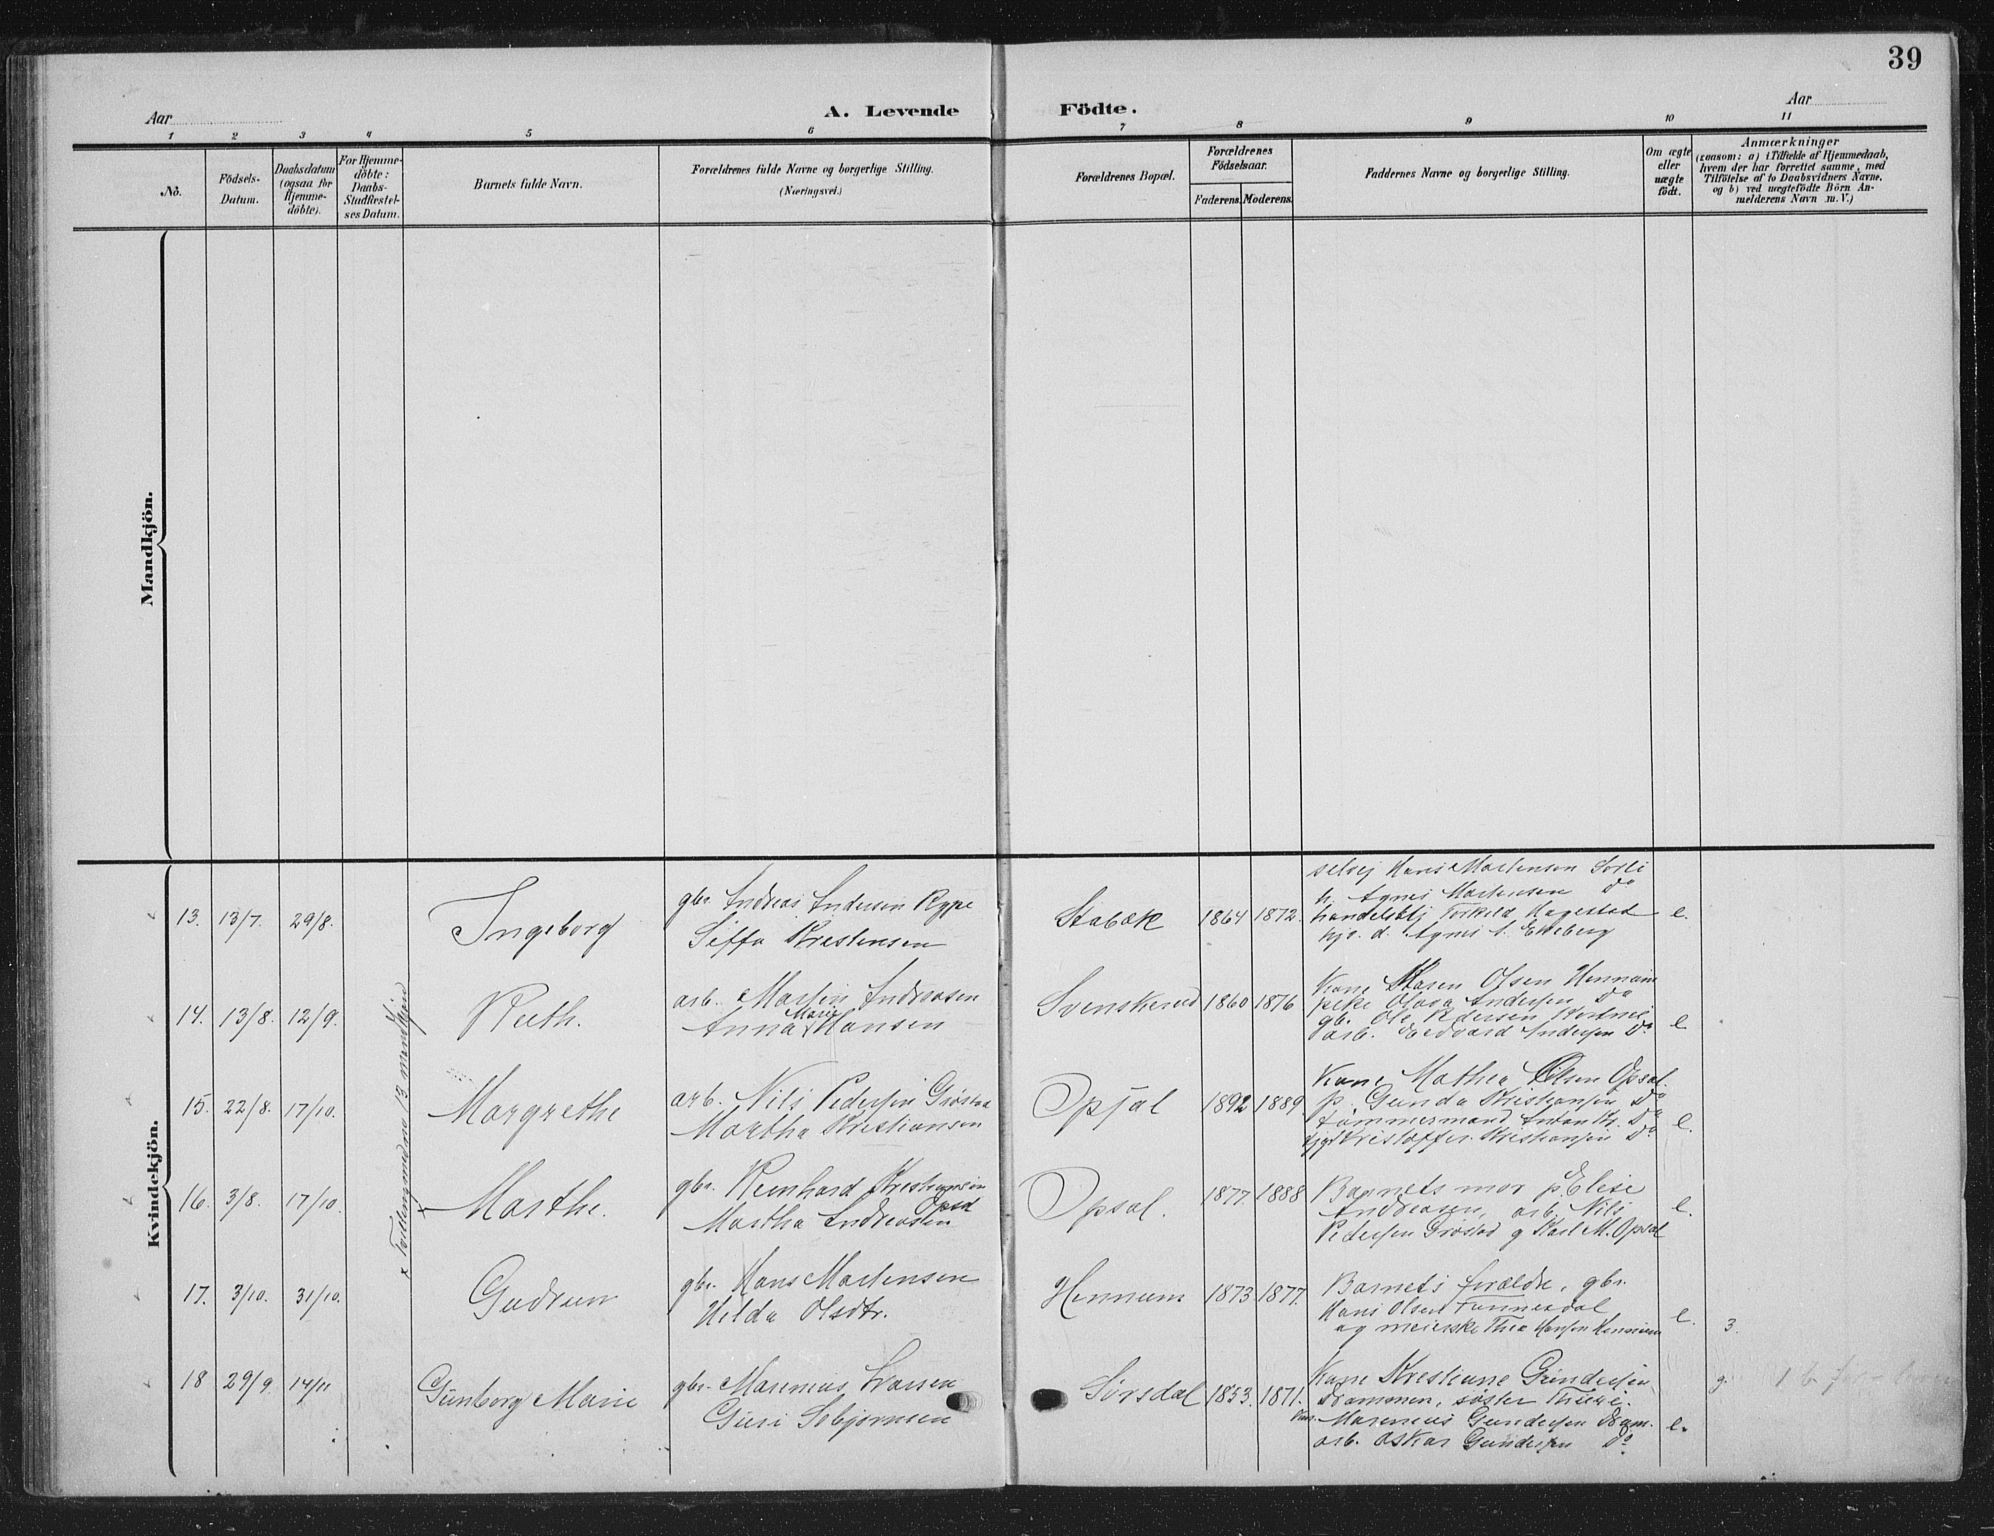 39
Aar
A. Levende Födte.
Aar
1 2 3 4 5 6 7 8 9 10 11
No.
Födsels-
Datum.
Daabsdatum
(ogsaa for
Hjemme-
döbte).
For Hjemme-
döbte:
Daabs-
Stadfæstel-
ses Datum.
Barnets fulde Navn.
Forældrenes fulde Navne og borgerlige Stilling.
(Næringsvei.)
Forældrenes Bopæl.
Forældrenes
Födselsaar.
Faderens. Moderens.
Faddernes Navne og borgerlige Stilling.
Om ægte
eller
uægte
födt.
Anmærkninger
(saasom: a) i Tilfælde af Hjemmedaab,
hvem der har forrettet samme, med
Tilföielse af to Daabsvidners Navne,
og b) ved uægtefödte Börn An-
melderens Navn m. V.)
Mandkjön.
Kvindekjön.
13. 13/7. 29/8. Ingeborg
gbr. Andreas Andersen Rype
Kristensen
Stabæk 1864 1872.
Hans Martensen
h. Agnes Martensen Do
Torkild Hagestad
d. Agnes Ekeberg
e.
14. 13/8. 12/9. Ruth.
arb. Martin Andreasen
Anna Marie Hansen
Svenskerud 1860 1876
Kone Maren Olsen Hennum
pike Olava Andersen Do
gbr. Ole Pedersen
arb. Edvard Andersen Do
e
15. 22/8. 17/10. Margrethe
arb. Nils Pedersen Grøstad
Martha Kristiansen
Opsal 1892 1889
Kone Mathea Olsen Opsal.
p. Gunda Kristiansen Do
tømmermand Anton Kr. Do
Kristoffer Kristiansen Do
e.
16. 3/8. 17/10. x Marthe.
gbr. Reinhard Kristiansen
Opsal
Martha Andreasen
Opsal. 1877. 1888
Barnets mor p. Elise
Andreasen, arb. Nils
Pedersen Grøstad g Karl M. Opsal
e.
x Tvilling med no 13 mandkjøn
17. 3/10. 31/10. Gudrun
gbr. Hans Martensen
Hilda Olsdtr.
Hennum 1873 1877.
Barnets forældre, gbr.
Hans Olsen
og meierske Thea Hansen Hennum
e. 3.
18 29/9 14/11 Gunborg Marie
gbr. Marenius Larsen
Guri
Sørsdal 1853. 1871.
Kone Kristiane Gundersen
Drammen, søster
Marenius Gundersen Dram.
arb. Oskar Gundersen Do
e. g.